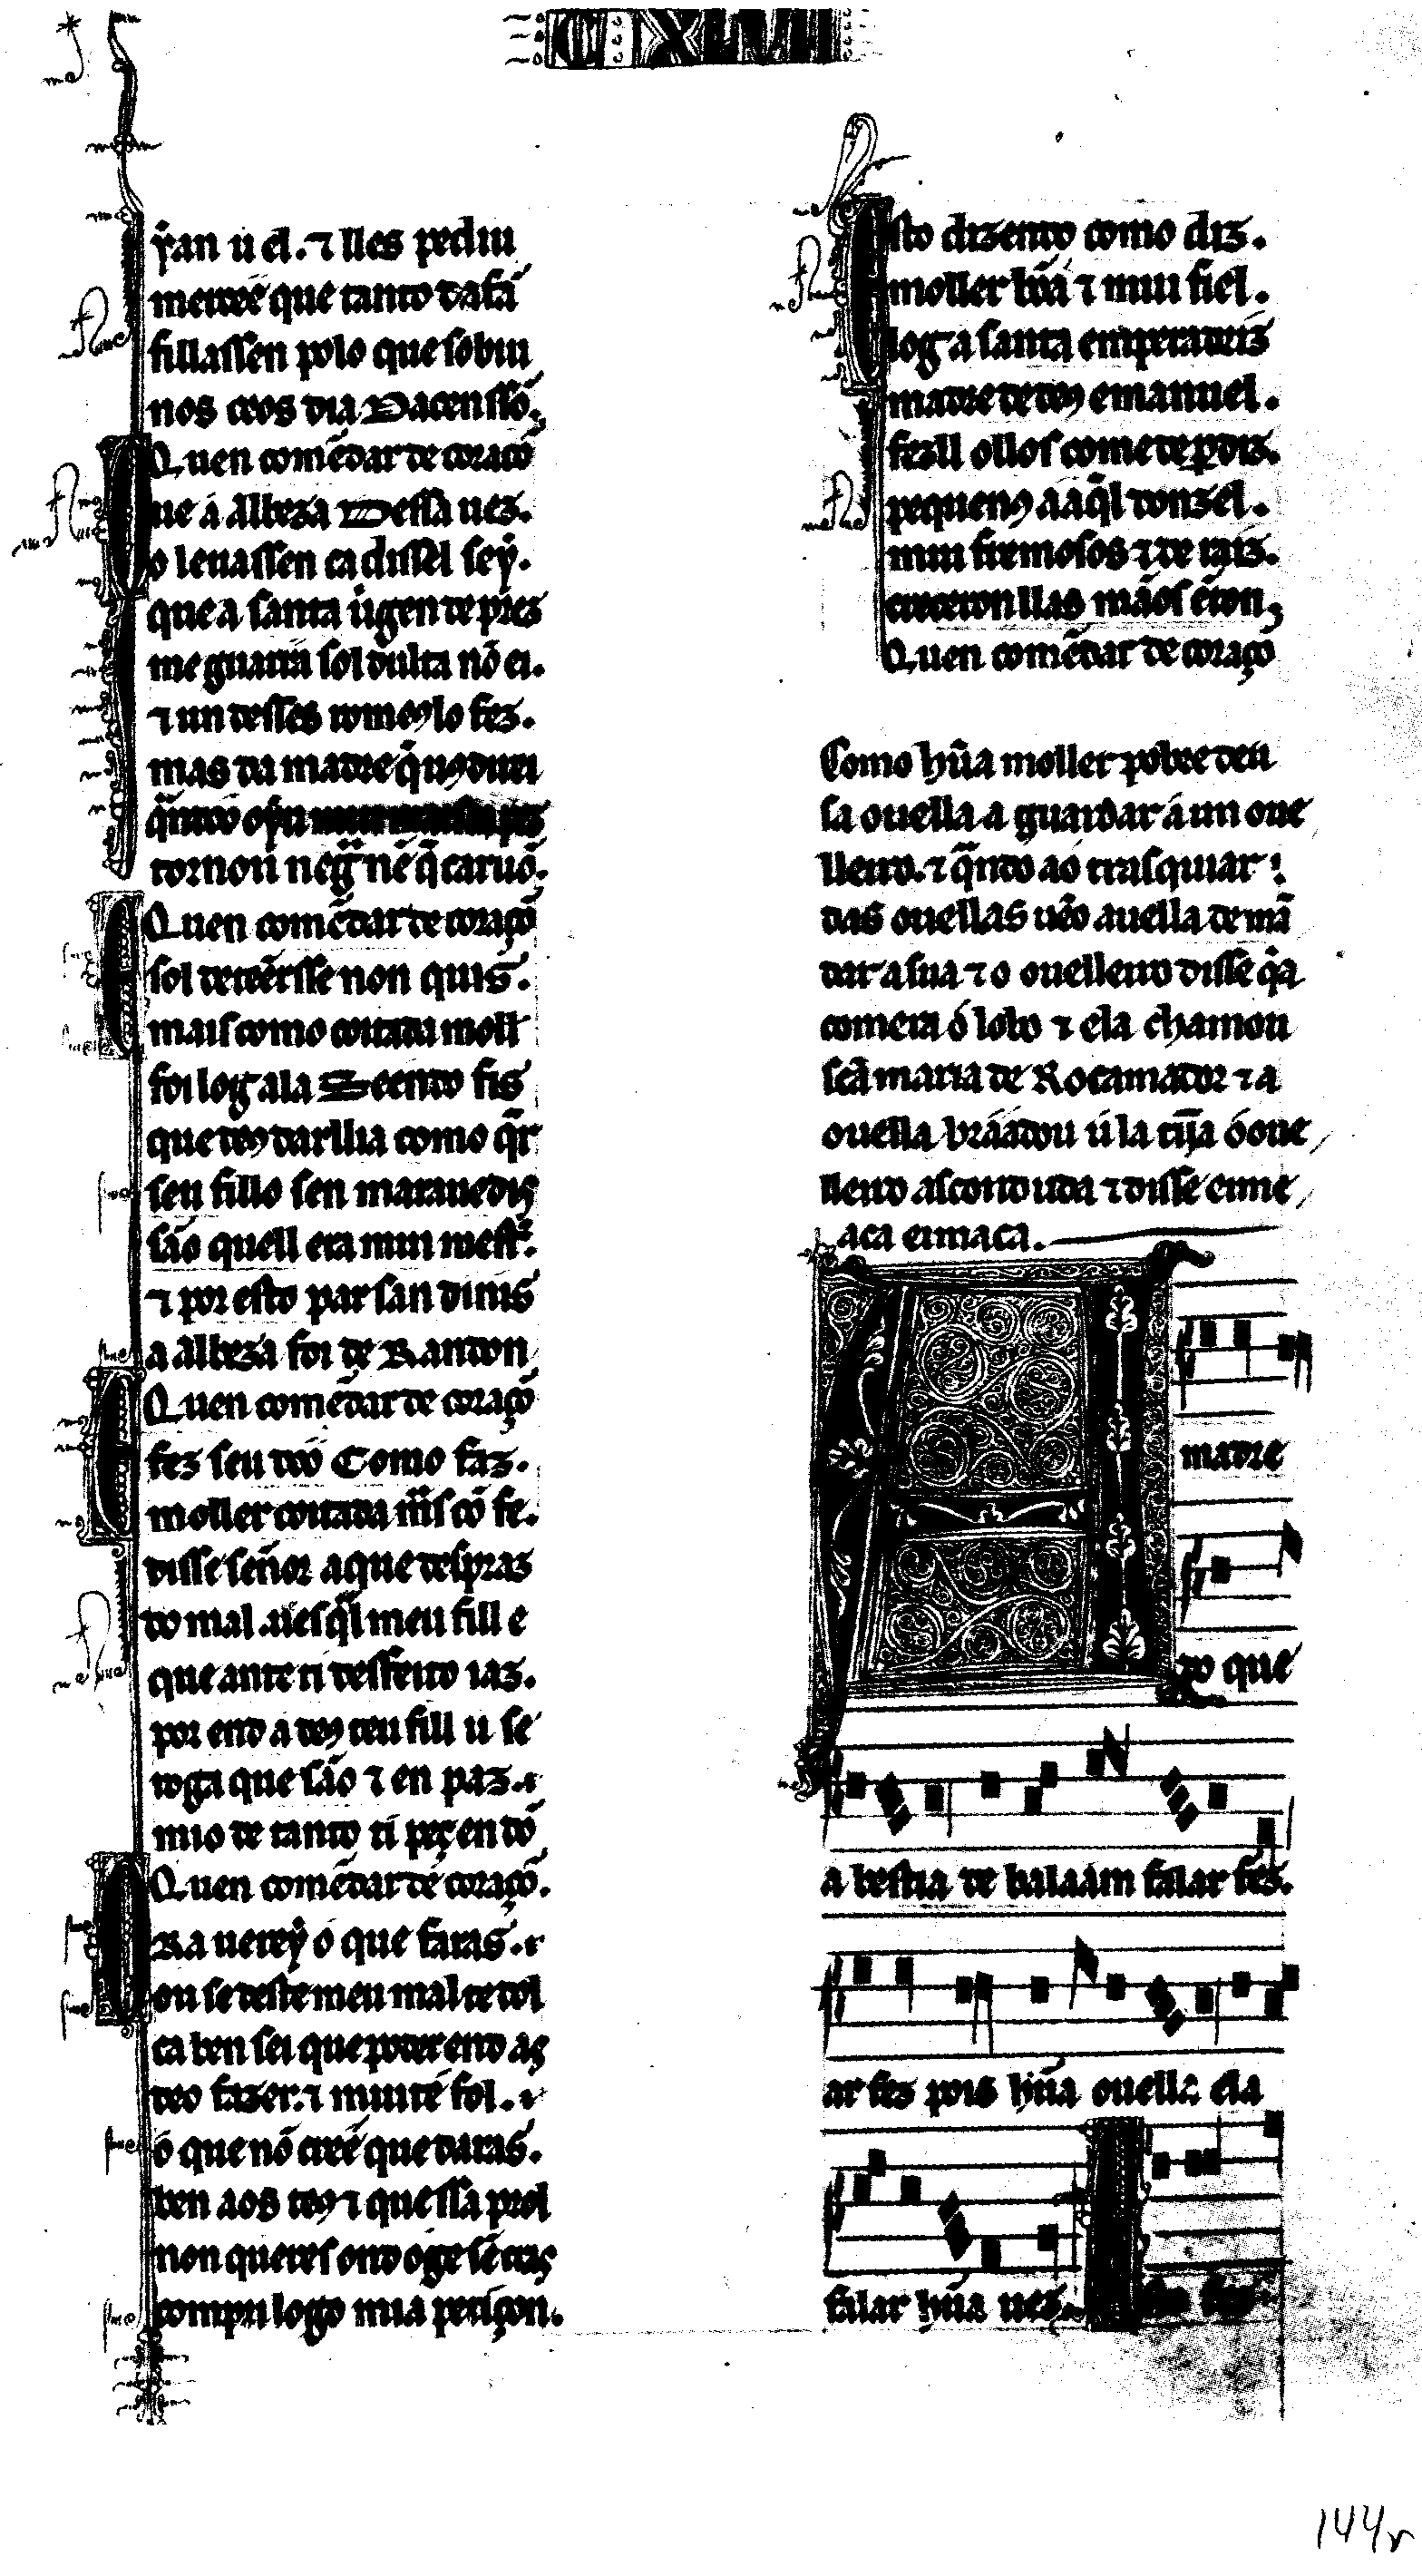 C XLVII
yran u el. ⁊ lles pediu
mercee que tanto dafã
fillassen polo que sobiu
nos ceos dia Dacenssõ,
Quen comẽdar de coraçõ
ue á Albeza Dessa uez.
o leuassen ca dissel sey.
que a santa uirgen de prez
me guarrá sol dulta nõ ei.
⁊ un desses romeus lo fez.
mas da madre
tornou neg̃ nẽ q̃ caruõ.
Quen comẽdar de coraçõ
sol deteersse non quis.
mais como coitada moll
foi log ala Seendo fis
que deus darllia como q̃r
seu fillo sen marauedis
são quell era mui mest̃.
⁊ por esto par san dinis
a Albeza foi de Randon
Quen comẽdar de coraçõ
fez seu doo Como faz.
moller coitada m̃s cõ fe.
disse señor a que despraz
do mal ues q̃l meu fill e
que ante ti desfeito iaz.
por end a deus teu fill u se
roga que são ⁊ en paz.
mio de tanto ti peç en dõ
Quen comẽdar de coraçõ.
Ra uerey ó que faras.
ou se deste meu mal te dol
ca ben sei que poder end as
deo fazer. ⁊ mui tẽ fol.
ó que nõ cree que daras.
ben aos teus ⁊ que ssa prol
non queres ond oge sẽ cras
compri logo mia petiçon.
Isto dizendo como diz.
moller bõa ⁊ mui fiel.
log a santa emperadriz
madre de deus emanuel.
fezll ollos come de perdiz.
pequenos a aq̃l donzel.
mui fremosos ⁊ de raiz.
creceronllas mãos ẽton,
Quen comẽdar de coraçõ
Como hũa moller pobre deu
sa ouella a guardar á un oue
lleiro. ⁊ q̃ndo ao trasquiar
das ouellas uẽo a uella demã
dar a sua ⁊ o ouelleiro disse q̃ a
comera ó lobo ⁊ ela chamou
scã maria de Rocamador ⁊ a
ouella braadou ú la tĩja ó oue
lleiro ascondudda ⁊ disse eime
aca eimaca.
A madre
do que
a bestia de balaam falar fez.
ar fez pois hũa ouella ela
falar hũa uez.
144r